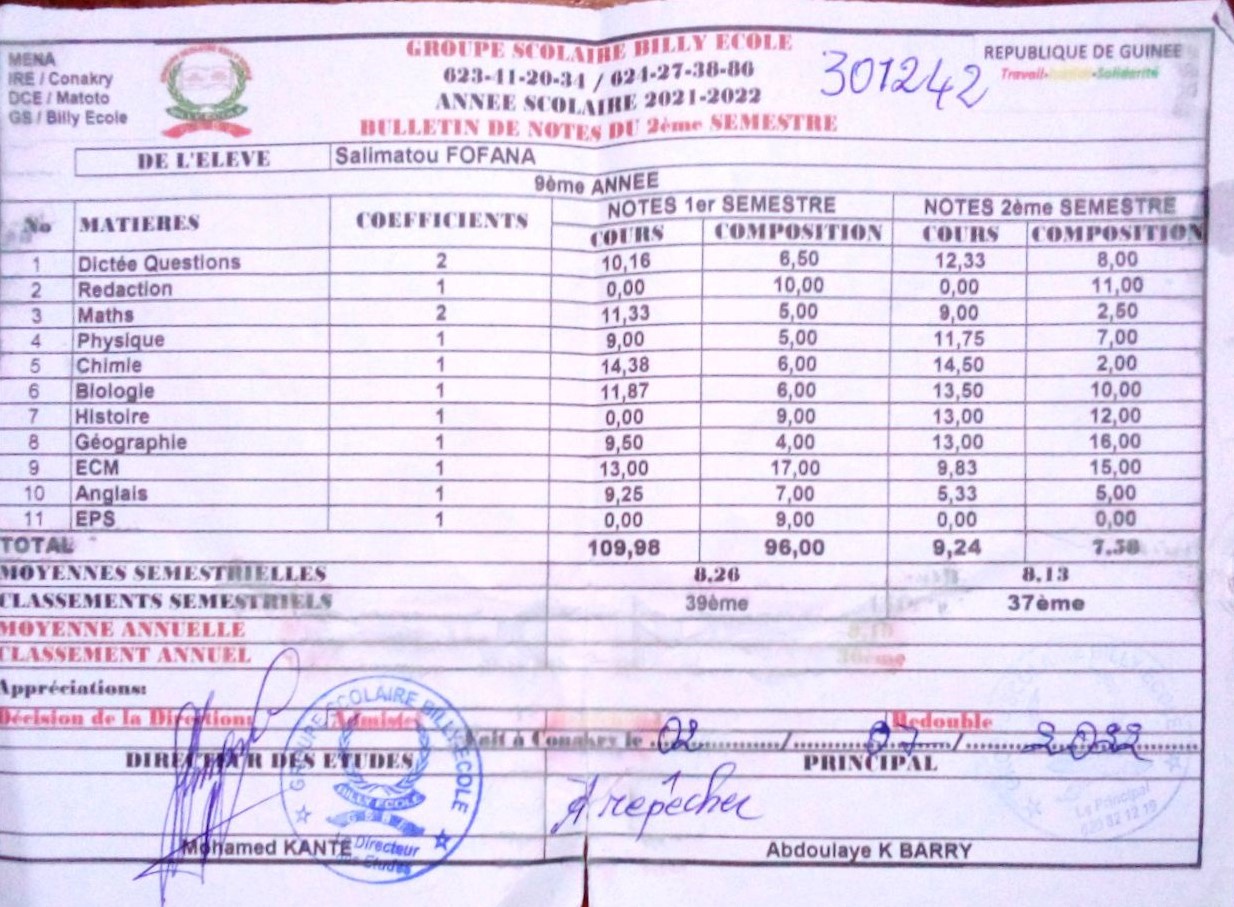 MENA
IRE / Conakry
DCE / Matoto
GS / Billy Ecole
GROUPE SCOLAIRE BILLY ECOLE
623-41-20-34 / 624-27-38-86
ANNEE SCOLAIRE 2021-2022
BULLETIN DE NOTES DU 2ème SEMESTRE
301242
REPUBLIQUE DE GUINEE
Travail-Justice-Solidarité
DE L'ELEVE Salimatou FOFANA
9ème ANNEE
No MATIERES COEFFICIENTS NOTES 1er SEMESTRE NOTES 2ème SEMESTRE
COURS COMPOSITION COURS COMPOSITION
1 Dictée Questions 2 10,16 6,50 12,33 8,00
2 Redaction 1 0,00 10,00 0,00 11,00
3 Maths 2 11,33 5,00 9,00 2,50
4 Physique 1 9,00 5,00 11,75 7,00
5 Chimie 1 14,38 6,00 14,50 2,00
6 Biologie 1 11,87 6,00 13,50 10,00
7 Histoire 1 0,00 9,00 13,00 12,00
8 Géographie 1 9,50 4,00 13,00 16,00
9 ECM 1 13,00 17,00 9,83 15,00
10 Anglais 1 9,25 7,00 5,33 5,00
11 EPS 1 0,00 9,00 0,00 0,00
TOTAL 109,98 96,00 9,24 7.58
MOYENNES SEMESTRIELLES 8.26 8.13
CLASSEMENTS SEMESTRIELS 39ème 37ème
MOYENNE ANNUELLE
CLASSEMENT ANNUEL
Appréciations:
Décision de la Direction: Admise Redouble
Fait à Conakry le .02............/..........07....../..........2022.........
DIRECTEUR DES ETUDES PRINCIPAL
GROUPE SCOLAIRE BILLY-ECOLE
BILLY ECOLE
Le Directeur
des Etudes
A repêcher
Le Principal
Mohamed KANTE Abdoulaye K BARRY